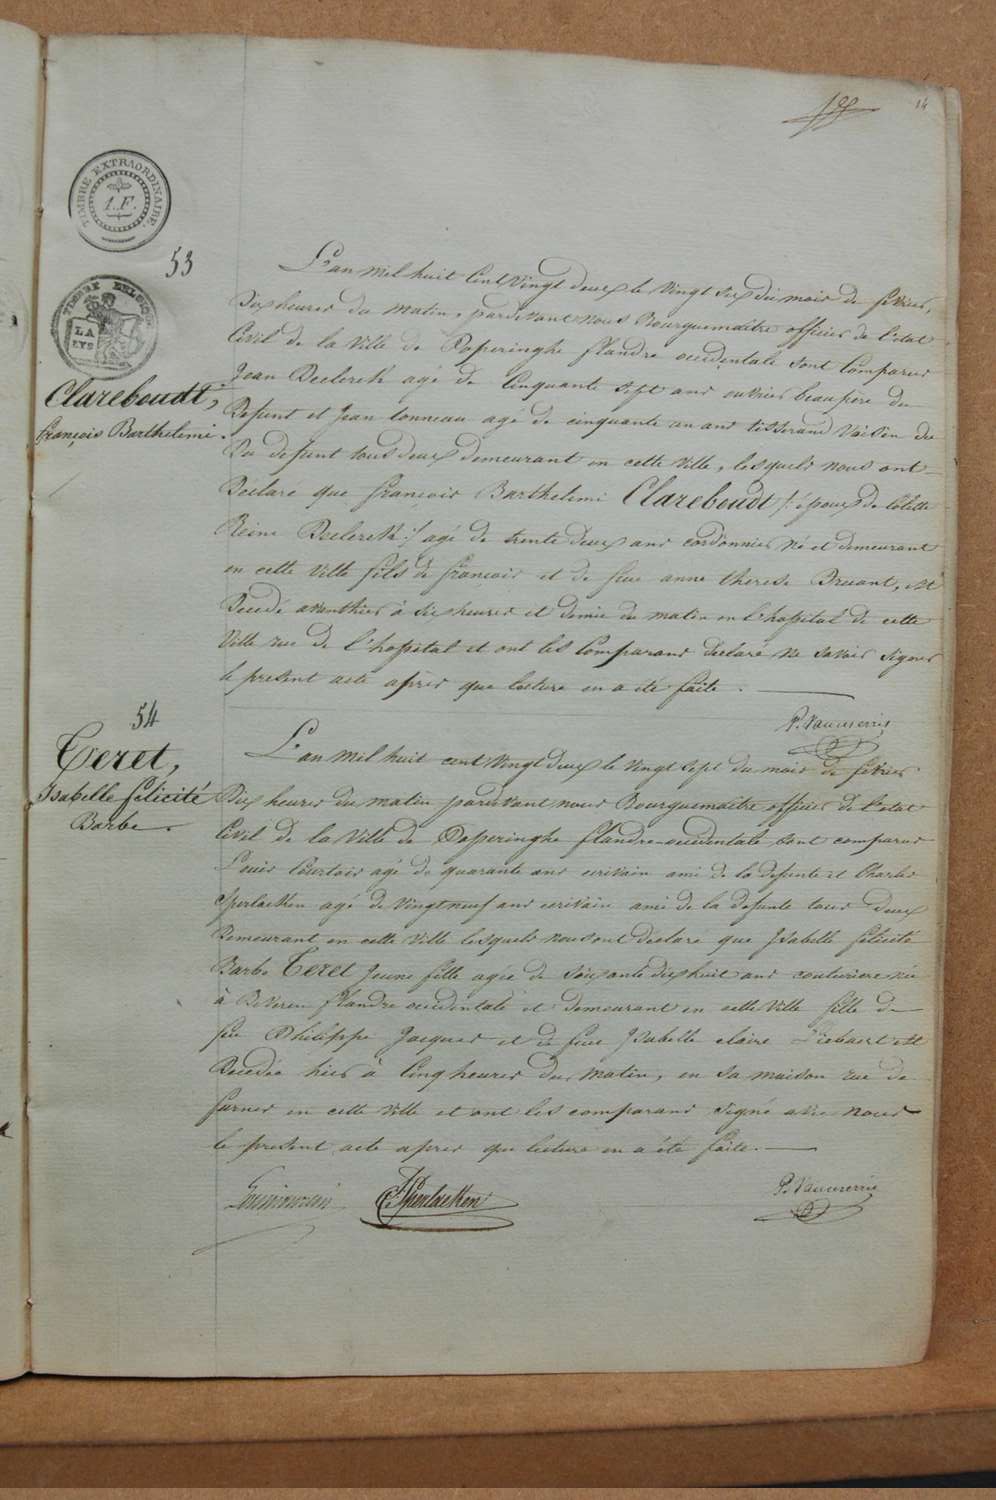 14
TIMBRE EXTRAORDINAIRE.
1.F.
53
TIMBRE BELGIQUE
LA
LYS
Clareboudt,
françois Barthelemi.
L'an mil huit Cent Vingt deux le Vingt six du mois de fevrier,
Dix heures du matin, pardevant nous Bourguemaître officier de l'etat
Civil de la Ville de Poperinghe flandre occidentale sont Comparus
Jean Declerck agé de Cinquante sept ans ouvrier beaupere du
Defunt et Jean Conneau agé de cinquante un ans tisserand Voisin du
Du defunt tous deux demeurant en cette Ville, lesquels nous ont
Declaré que françois Barthelemi Clareboudt /: époux de Colette
Reine Declerck :/ agé de trente deux ans cordonnier né et demeurant
en cette Ville fils de francois et de feue anne therese Bruant, est
Decedé avanthier à six heures et demie du matin en l'hopital de cette
Ville rue de l'hopital et ont les Comparans declaré ne savoir signer
le present acte après que lecture en a été faite.
P. Vanmerris
54
Teret,
Isabelle félicité
Barbe.
L'an mil huit cent Vingt deux le Vingt sept du mois de fevrier
Dix heures du matin pardevant nous Bourguemaître officier de l'etat
Civil de la Ville de Poperinghe flandre occidentale sont comparus
Louis Courtois agé de quarante ans ecrivain ami de la defunte et Charles
Sperlaeken agé de Vingt neuf ans ecrivain ami de la defunte tous deux
Demeurant en cette Ville lesquels nous ont declaré que Isabelle felicité
Barbe Teret Jeune fille agée de soixante dix huit ans couturiere née
à Beveren flandre occidentale et demeurant en cette Ville fille de
feu Philippe Jacques et de feue Isabelle claire Liebaert est
Decedée hier à Cinq heures du matin, en sa maison rue de
furnes en cette Ville et ont les comparans signé avec nous
le present acte apres que lecture en a été faite.
C. Sperlaeken
P. Vanmerris